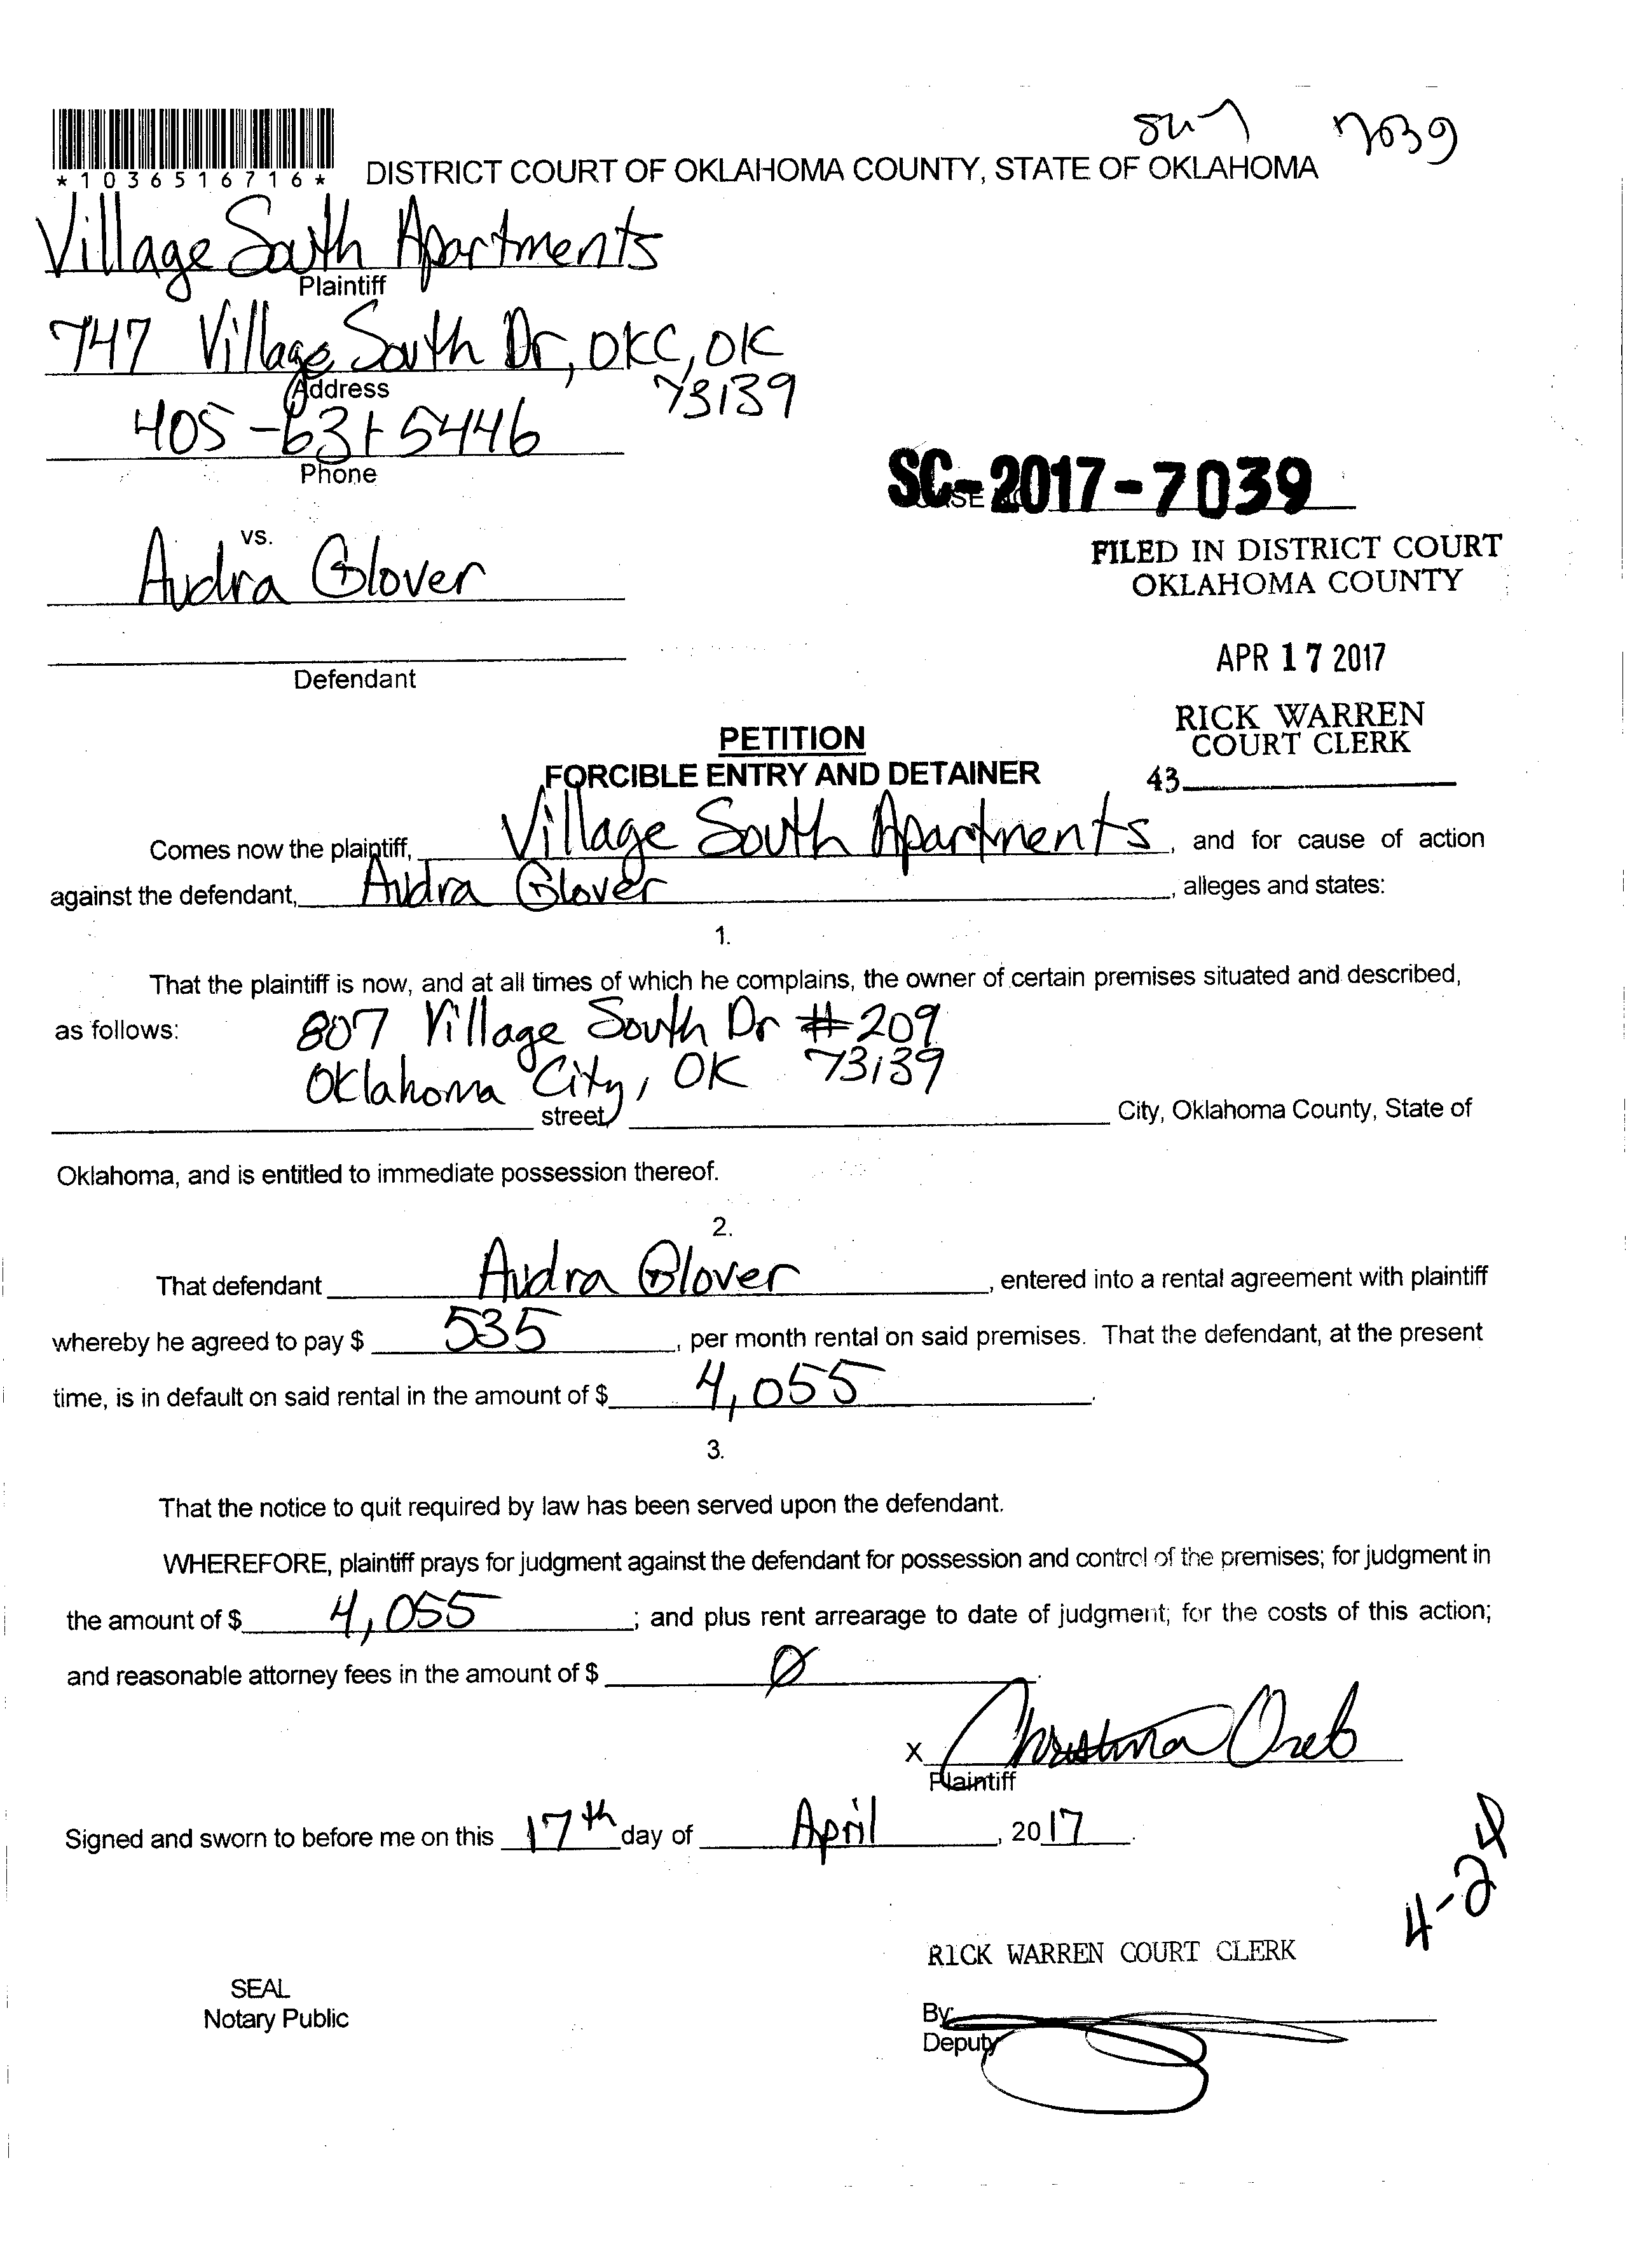 7039
*1036516716*
DISTRICT COURT OF OKLAHOMA COUNTY, STATE OF OKLAHOMA
Village South Apartments
Plaintiff
747 Village South Dr, OKC, OK
73139
Address
405-631-5446
Phone
SC-2017-7039
vs.
Audra Glover
FILED IN DISTRICT COURT
OKLAHOMA COUNTY
APR 17 2017
Defendant
RICK WARREN
COURT CLERK
43
PETITION
FORCIBLE ENTRY AND DETAINER
Comes now the plaintiff, Village South Apartments, and for cause of action
against the defendant, Audra Glover, alleges and states:
1.
That the plaintiff is now, and at all times of which he complains, the owner of certain premises situated and described,
as follows: 807 Village South Dr #209
Oklahoma City, OK 73139
street City, Oklahoma County, State of
Oklahoma, and is entitled to immediate possession thereof.
2.
That defendant Audra Glover, entered into a rental agreement with plaintiff
whereby he agreed to pay $ 535, per month rental on said premises. That the defendant, at the present
time, is in default on said rental in the amount of $ 4,055.
3.
That the notice to quit required by law has been served upon the defendant.
WHEREFORE, plaintiff prays for judgment against the defendant for possession and control of the premises; for judgment in
the amount of $ 4,055; and plus rent arrearage to date of judgment; for the costs of this action;
and reasonable attorney fees in the amount of $ 0.
X Christina
Plaintiff
Signed and sworn to before me on this 17th day of April, 2017.
4-24
RICK WARREN COURT CLERK
SEAL
Notary Public
By
Deputy